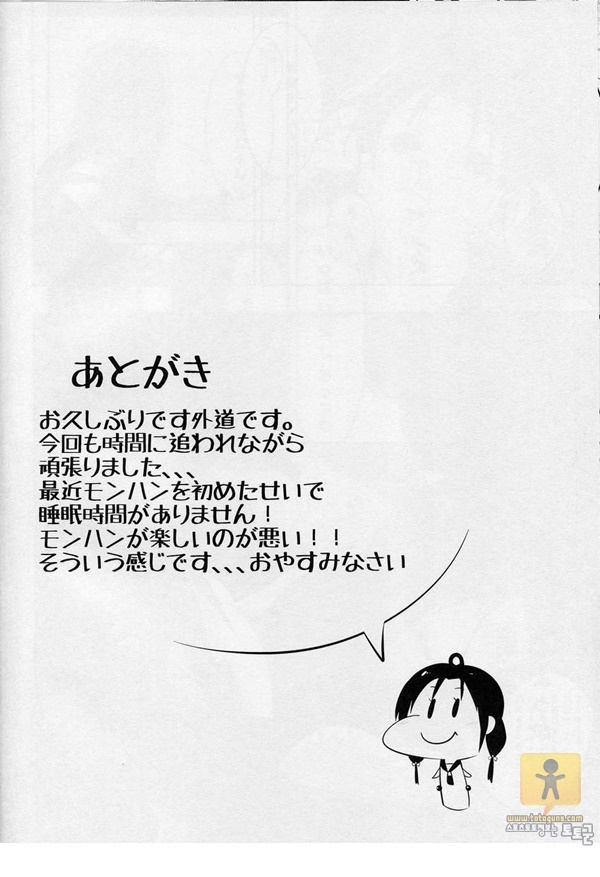 あとがき
お久しぶりです外道です。
今回も時間に追われながら
頑張りました、、、
最近モンハンを初めたせいで
睡眠時間がありません！
モンハンが楽しいのが悪い！！
そういう感じです、、、おやすみなさい
www.totoguns.com
토토군